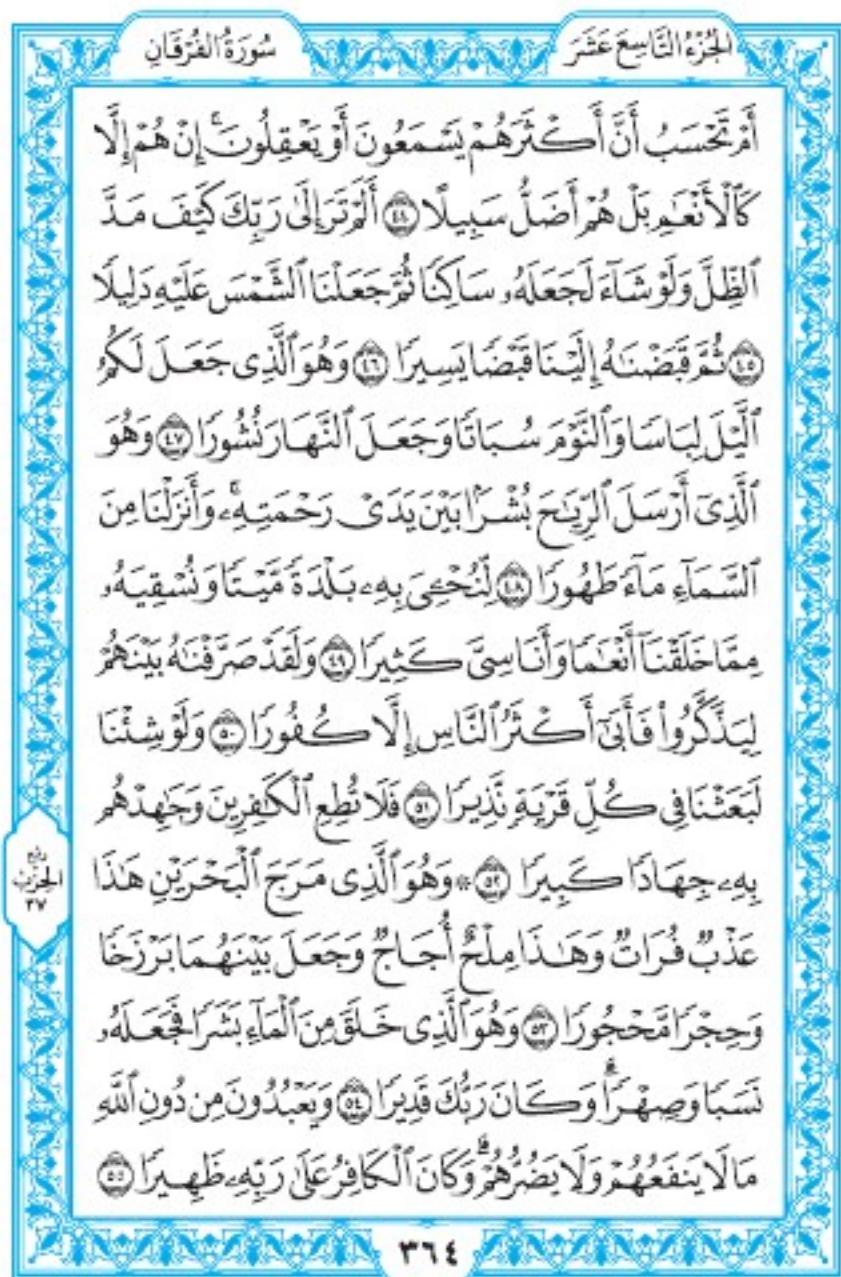 الجُزْءُ التَّاسِعَ عَشَرَ
سُورَةُ الفُرْقَانِ
أَمْ تَحْسَبُ أَنَّ أَكْثَرَهُمْ يَسْمَعُونَ أَوْ يَعْقِلُونَۚ إِنْ هُمْ إِلَّا
كَٱلْأَنْعَٰمِ بَلْ هُمْ أَضَلُّ سَبِيلًا ٤٤ أَلَمْ تَرَ إِلَىٰ رَبِّكَ كَيْفَ مَدَّ
ٱلظِّلَّ وَلَوْ شَآءَ لَجَعَلَهُۥ سَاكِنٗا ثُمَّ جَعَلْنَا ٱلشَّمْسَ عَلَيْهِ دَلِيلٗا
٤٥ ثُمَّ قَبَضْنَٰهُ إِلَيْنَا قَبْضٗا يَسِيرٗا ٤٦ وَهُوَ ٱلَّذِى جَعَلَ لَكُمُ
ٱلَّيْلَ لِبَاسٗا وَٱلنَّوْمَ سُبَاتٗا وَجَعَلَ ٱلنَّهَارَ نُشُورٗا ٤٧ وَهُوَ
ٱلَّذِىٓ أَرْسَلَ ٱلرِّيَٰحَ بُشْرَۢا بَيْنَ يَدَىْ رَحْمَتِهِۦۚ وَأَنزَلْنَا مِنَ
ٱلسَّمَآءِ مَآءٗ طَهُورٗا ٤٨ لِّنُحْـِۧىَ بِهِۦ بَلْدَةٗ مَّيْتٗا وَنُسْقِيَهُۥ
مِمَّا خَلَقْنَآ أَنْعَٰمٗا وَأَنَاسِىَّ كَثِيرٗا ٤٩ وَلَقَدْ صَرَّفْنَٰهُ بَيْنَهُمْ
لِيَذَّكَّرُوا۟ فَأَبَىٰٓ أَكْثَرُ ٱلنَّاسِ إِلَّا كُفُورٗا ٥٠ وَلَوْ شِئْنَا
لَبَعَثْنَا فِى كُلِّ قَرْيَةٖ نَّذِيرٗا ٥١ فَلَا تُطِعِ ٱلْكَٰفِرِينَ وَجَٰهِدْهُم
بِهِۦ جِهَادٗا كَبِيرٗا ٥٢ ۞ وَهُوَ ٱلَّذِى مَرَجَ ٱلْبَحْرَيْنِ هَٰذَا
عَذْبٞ فُرَاتٞ وَهَٰذَا مِلْحٌ أُجَاجٞ وَجَعَلَ بَيْنَهُمَا بَرْزَخٗا
وَحِجْرٗا مَّحْجُورٗا ٥٣ وَهُوَ ٱلَّذِى خَلَقَ مِنَ ٱلْمَآءِ بَشَرٗا فَجَعَلَهُۥ
نَسَبٗا وَصِهْرٗاۗ وَكَانَ رَبُّكَ قَدِيرٗا ٥٤ وَيَعْبُدُونَ مِن دُونِ ٱللَّهِ
مَا لَا يَنفَعُهُمْ وَلَا يَضُرُّهُمْۗ وَكَانَ ٱلْكَافِرُ عَلَىٰ رَبِّهِۦ ظَهِيرٗا ٥٥
ربع
الحزب
٣٧
٣٦٤